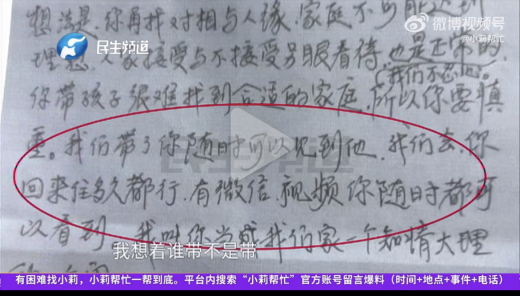 微博视频号
@小莉帮忙
民生频道
想法是.你再找对相与人缘.家庭不可能达到
理想.人家接受与不接受另眼看待.也是正常的.
(我们不忍心.
你带孩子很难找到合适的家庭.所以你要慎
重。我们带了你随时可以见到他.我们去.你
回来住多久都行.有微信.视频你随时都可
以看到.我叫你当成我们家一个知情大理
我想着谁带不是带
有困难找小莉，小莉帮忙一帮到底。平台内搜索“小莉帮忙”官方账号留言爆料（时间+地点+事件+电话）